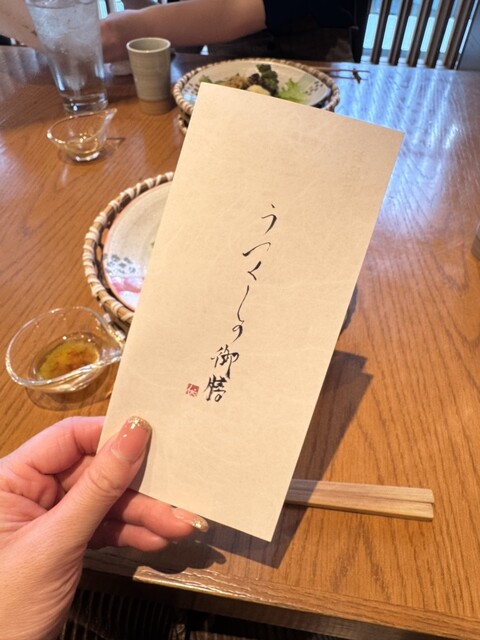 うつくしの御膳